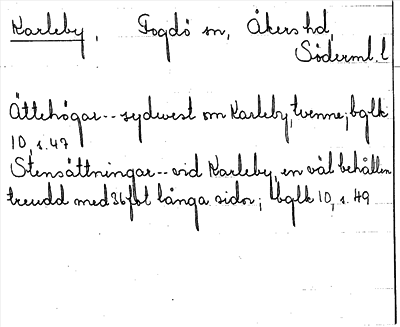 Karleby, Fogdö sn, Åkers hd,
Söderml. l
Ättehögar -- sydvest om Karleby, tvenne; bglk
10, s. 47
Stensättningar -- vid Karleby, en väl behållen
treudd med 36 fot långa sidor; bglk 10, s. 49